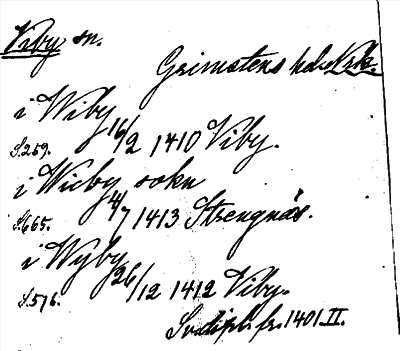 Viby sn.
Grimstens hd. Nrk.
i Wiby 16/2 1410 Viby.
S.259.
i Wicby sokn 4/7 1413 Strengnäs.
S.665.
i Wyby 26/12 1412 Viby.
S.576.
Sv. dipl. fr. 1401 II.